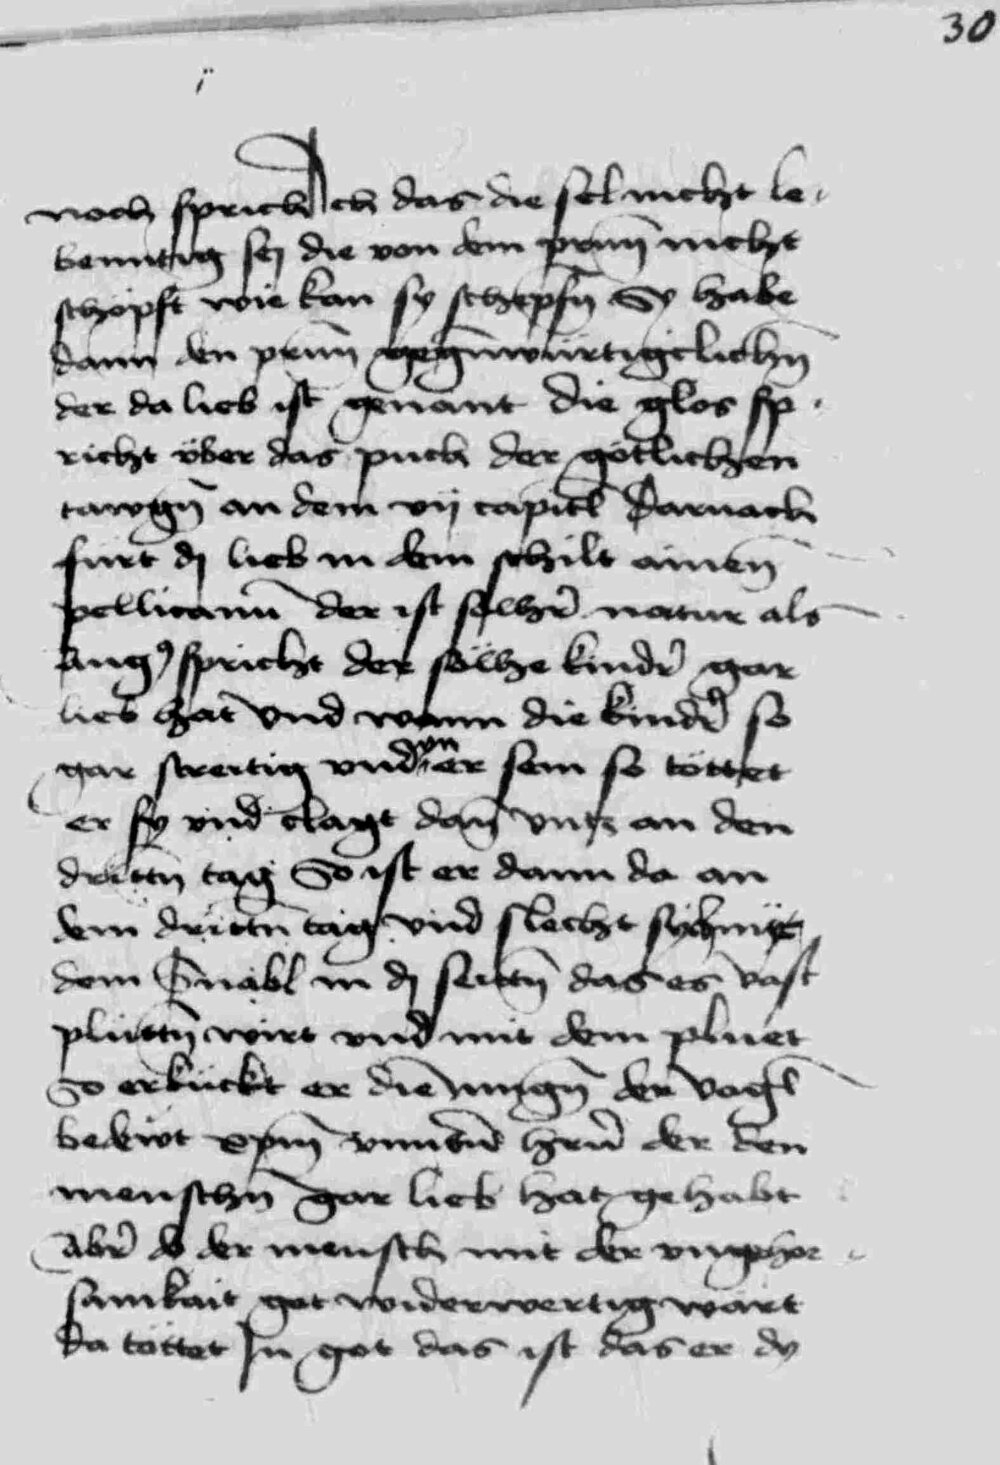 30
noch sprich Ich das die sel nicht le-
bentig sej die von dem prun̄ nicht
schöpft wie kan sy schepfn̄ Sy habe
dann den prun̄ gegn̄würtigclichn̄
der da lieb ist genant die glos sp-
richt über das puch der götlichen
tawgn̄ an dem vij capitl Darnach
fürt dj lieb in dem schilt ainen̄
pellicanu̅ der ist solhr̄ natur als
Aug9 spricht der sölhe kindr̄ gar
lieb hat vnd wann die kindr̄ so
gar streitig vnd vn er sein so töttet
er sy vnd clagt dan̄ vntz an den
drittn̄ tag So ist er dann da an
dem drittn̄ tag vnd slecht sich mit
dem Snabl in dj seitn̄ das es vast
plüttn̄ wirt vnd mit dem pluet
so erkückt er die jungn̄ der vogl
bedewt xpm̄ hrn̄ der den
menschn̄ gar lieb hat gehabt
Abr̄ do der mensch mit der vngehor-
samkait got widerwertig wart
da töttet In got das ist das er dy